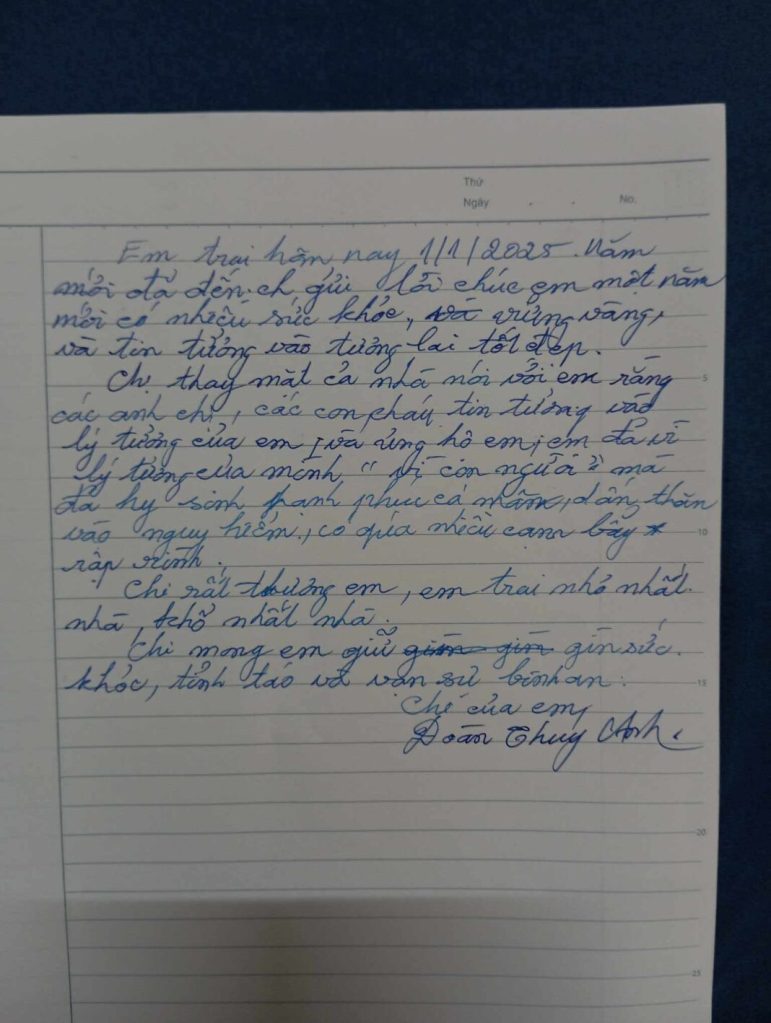 Thứ
Ngày . . No.
Em trai hôm nay 1/1/2025. Năm
mới đã đến. ch gửi lời chúc em một năm
mới có nhiều sức khỏe, và vững vàng,
và tin tưởng vào tương lai tốt đẹp.
Chị thay mặt cả nhà nói với em rằng
5
các anh chị, các con cháu tin tưởng vào
lý tưởng của em và ủng hộ em, em đã vì
lý tưởng của mình "vì con người" mà
đã hy sinh hạnh phúc cá nhân, dấn thân
vào nguy hiểm, có quá nhiều cạm bẫy
10
rập rình.
Chị rất thương em, em trai nhỏ nhất
nhà, khổ nhất nhà.
Chị mong em giữ gìn sức
khỏe, tỉnh táo và vạn sự bình an.
15
Chị của em,
Đoàn Thuy Anh.
20
25